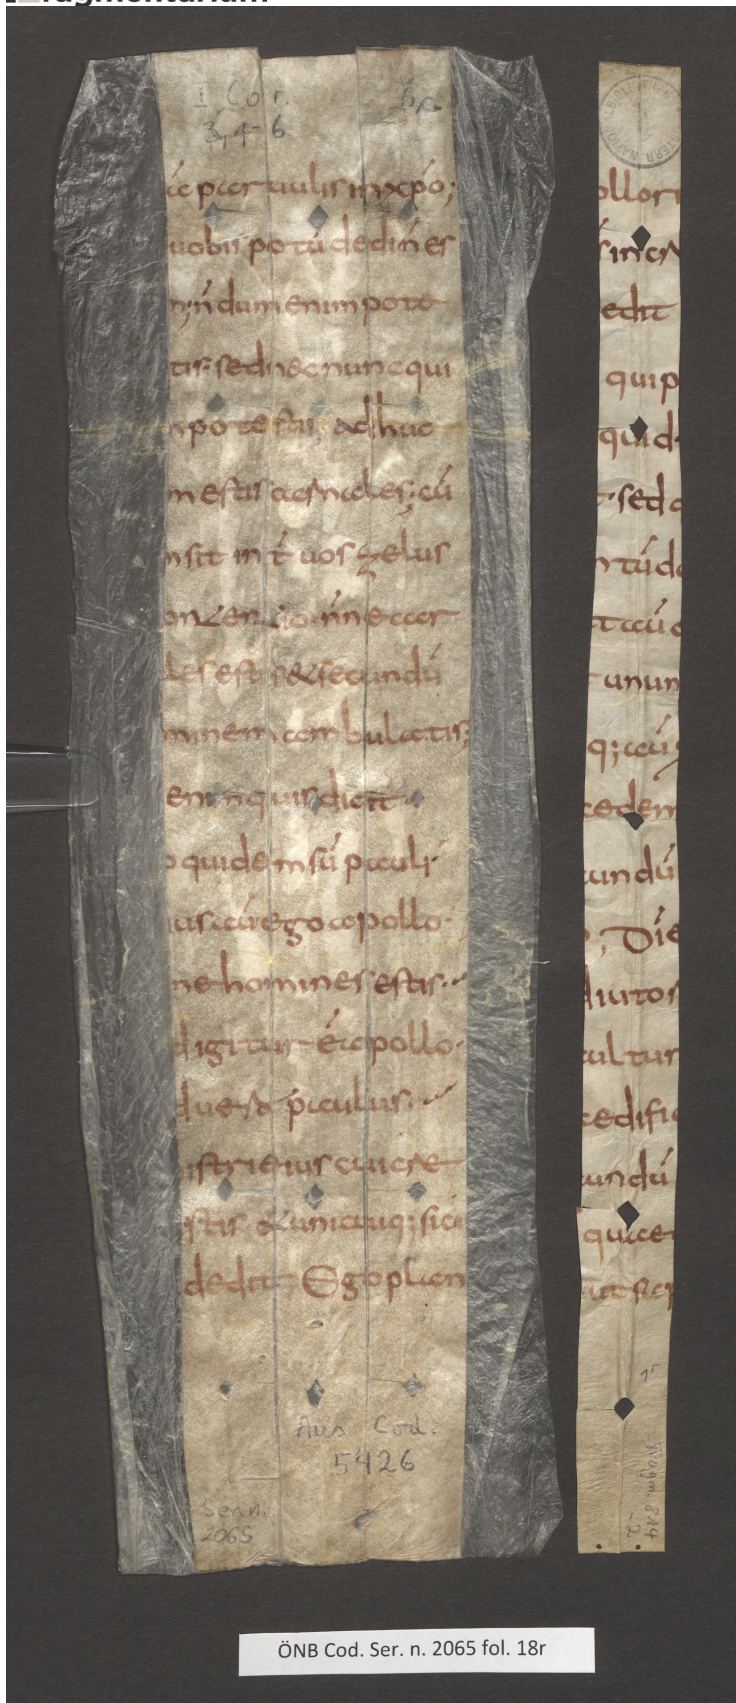 fragmentarium
I Cor.
3,4-6
par uulis in xpo;
uobis potu dedi n es
n; n dum enim pote
tis. sed nec nunc qui
potestis, adhuc
estis carnales; cu
sit int uos zelus
contentio. nne car
les estis & secundu
minem ambulatis;
enim quis dicit
quidem su pauli
us au ego apollo.
ne homines estis.
igitur e apollo.
paulus.
istri eius cui cre
stis. & unicuiq; sic
dedit; Ego plan
Aus Cod.
5426
Ser. n.
2065
ollor
s in cr
edit
qui p
quid
. sed
tu
au
unum
q; au
cedem
undu
; Die
diuitos
cultur
edifi
undu
quae
ut sap
1r
Fragm. 814
2
ÖNB Cod. Ser. n. 2065 fol. 18r